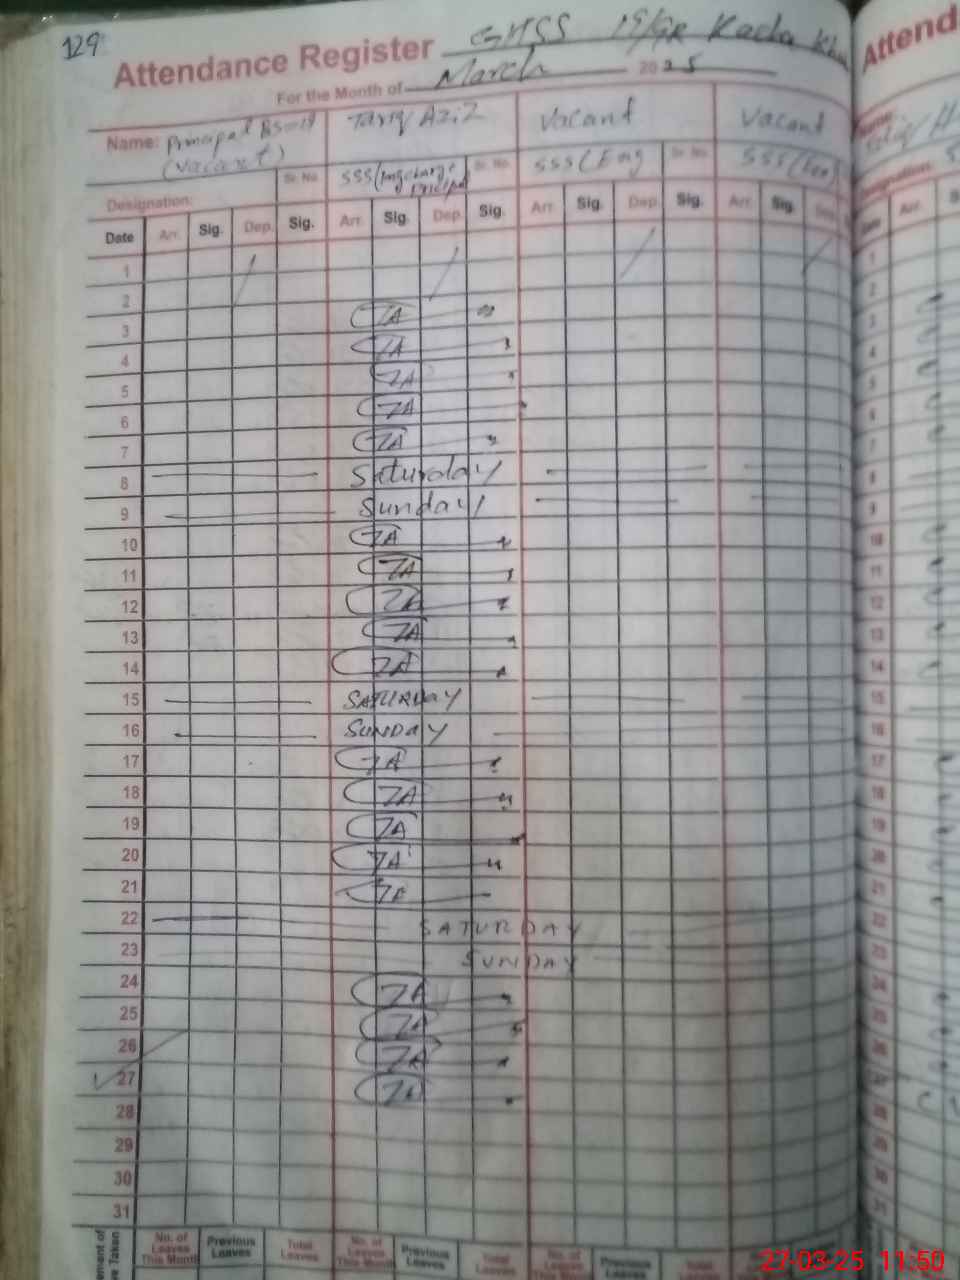 129
Attendance Register GHSS
For the Month of March 2025
Name: Principal BS-19 (Vacant) Tariq Aziz Vacant Vacant
Sr. No. SSS (Incharge Principal Sr. No. SSS (Eng Sr. No. SSS
Designation:
Date Arr. Sig. Dep. Sig. Arr. Sig. Dep. Sig. Arr. Sig. Dep. Sig. Arr. Sig.
1
2
3 TA
4 TA
5 TA
6 TA
7 TA
8 Saturday
9 Sunday
10 TA
11 TA
12 TA
13 TA
14 TA
15 SATURDAY
16 SUNDAY
17 TA
18 TA
19 TA
20 TA
21 TA
22 SATURDAY
23 SUNDAY
24 TA
25 TA
26 TA
27 TA
28
29
30
31
No. of Leaves This Month Previous Leaves Total Leaves No. of Leaves This Month Previous Leaves Total Leaves No. of Leaves This Month Previous Leaves Total Leaves
Attend
1
2
3
4
5
6
7
8
9
10
11
12
13
14
15
16
17
18
19
20
21
22
23
24
25
26
27
28
29
30
31
27-03-25 11:50